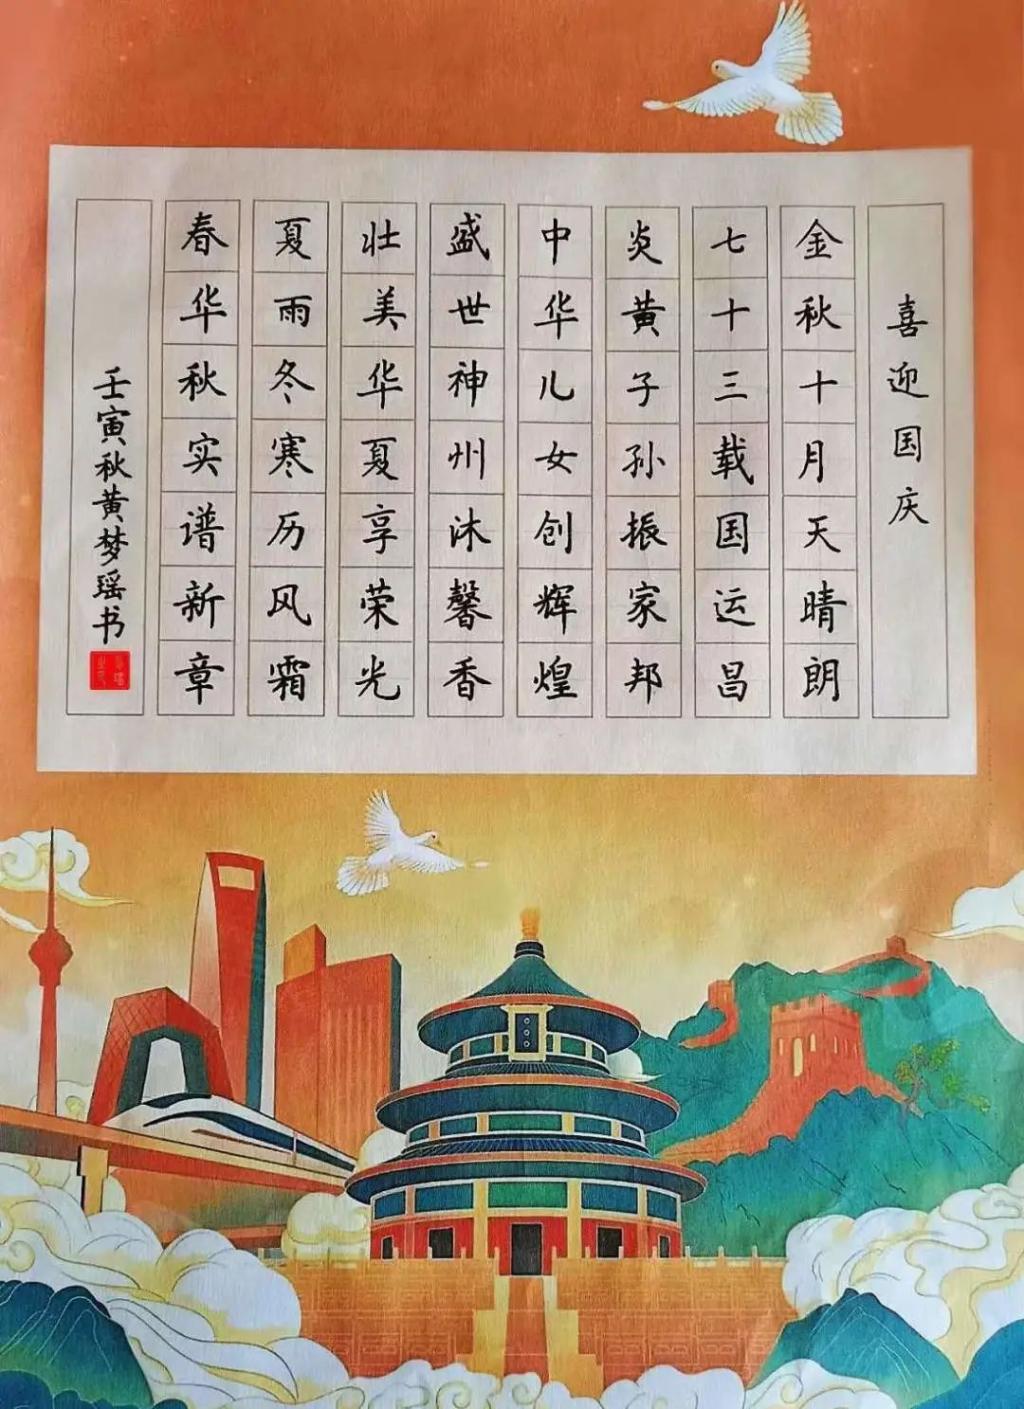 喜迎国庆
金秋十月天晴朗
七十三载国运昌
炎黄子孙振家邦
中华儿女创辉煌
盛世神州沐馨香
壮美华夏享荣光
夏雨冬寒历风霜
春华秋实谱新章
壬寅秋黄梦瑶书